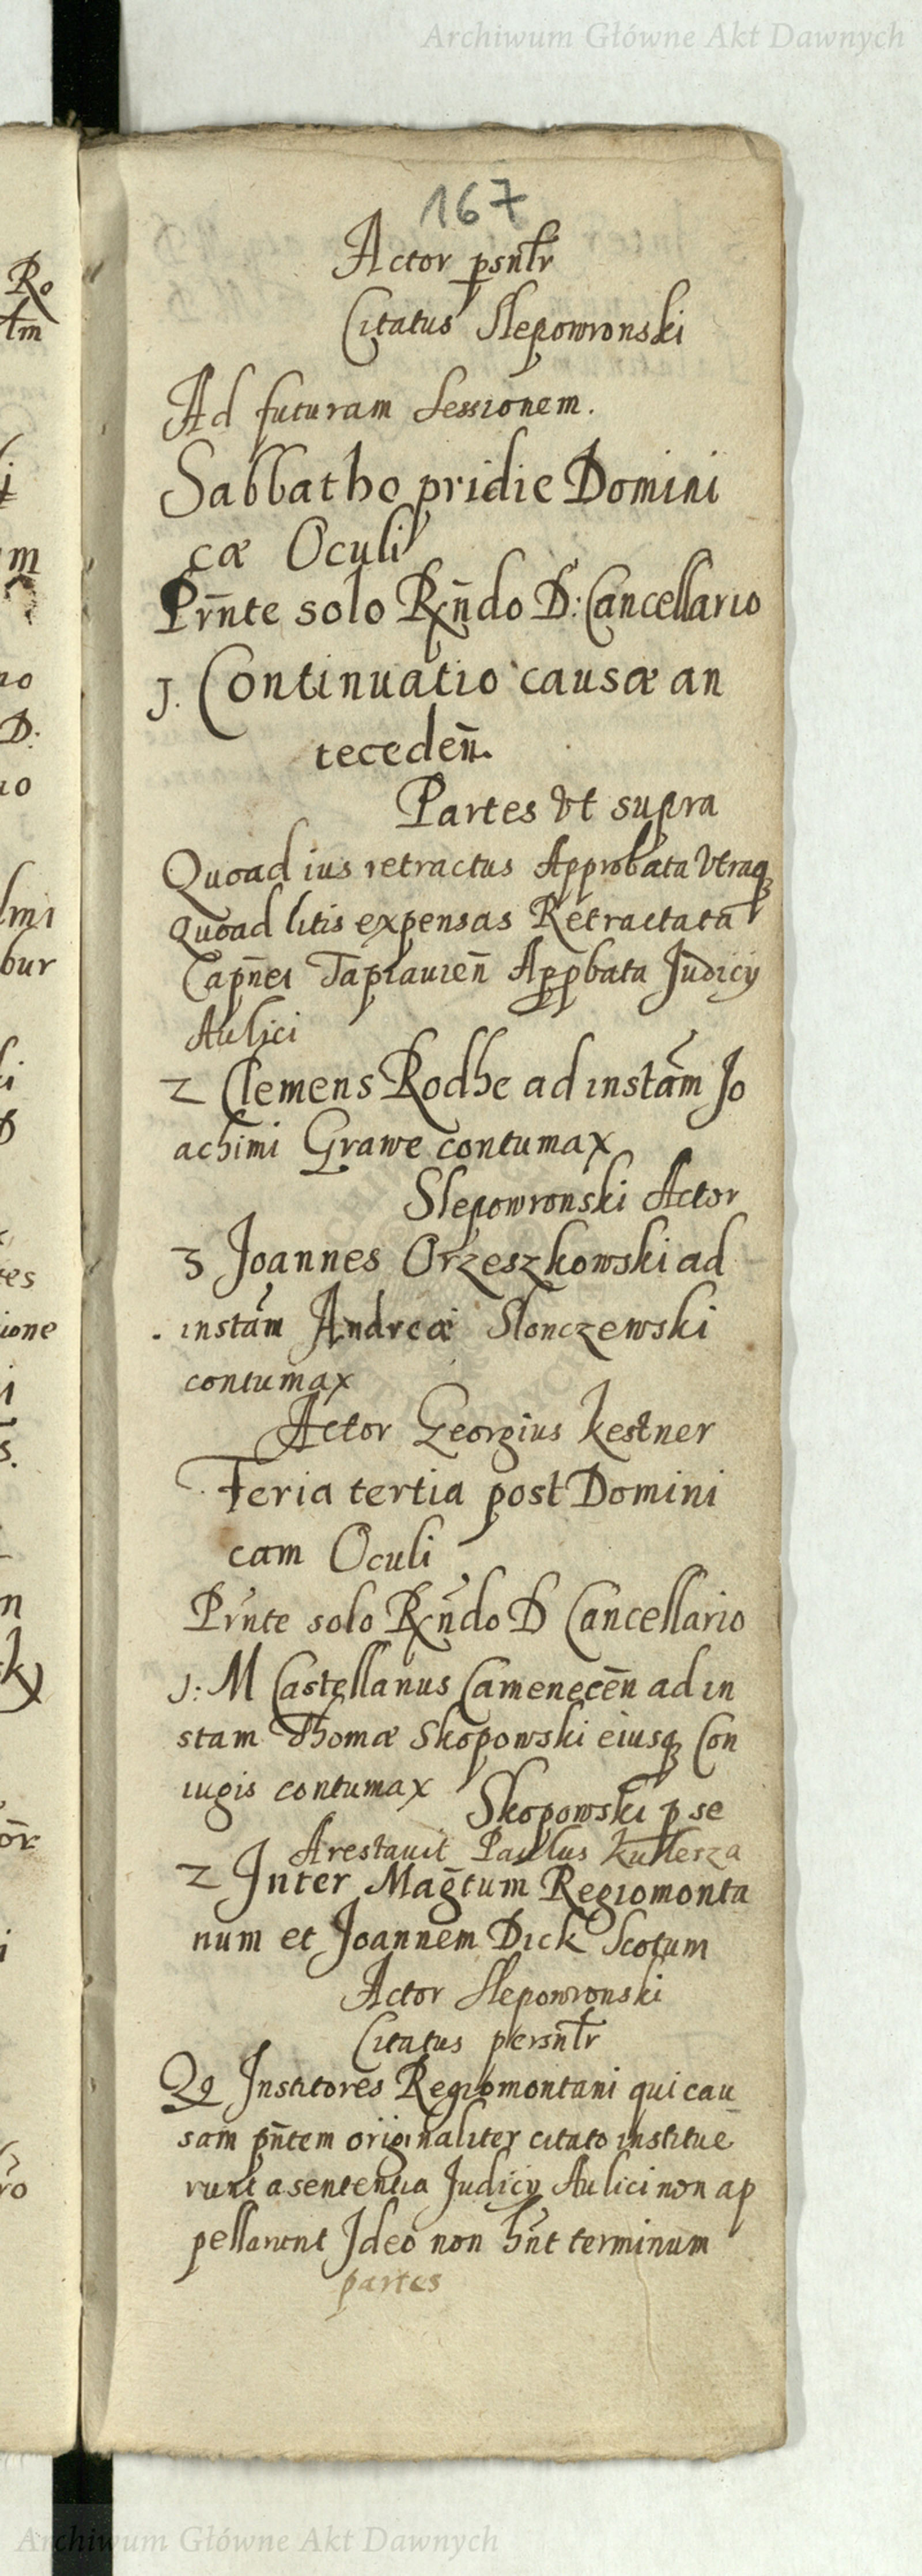 Archiwum Główne Akt Dawnych
167
Actor psntr
Citatus Slepowronski
Ad futuram Sessionem.
Sabbatho pridie Domini
cæ Oculi
Prn̄te solo Rn̄do D: Cancellario
J. Continuatio causæ an
teceden̄.
Partes vt supra
Quoad ius retractus Approbata Vtraq
Quoad litis expensas Retractata
Capn̄ei Tapiauien̄ Appbata Judicij
Aulici
2 Clemens Rodhe ad instam̄ Jo
achimi Grawe contumax
Slepowronski Actor
3 Joannes Orzeszkowski ad
instam̄ Andreæ Slonczewski
contumax
Actor Georgius kestner
Feria tertia post Domini
cam Oculi
Prn̄te solo Rn̄do D Cancellario
J: M Castellanus Camenecēn ad in
stam Thomæ Skopowski eiusq Con
iugis contumax
Skopowski p se
Arestauit Paulus kullerza
2 Inter Maḡtum Regiomonta
num et Joannem Dick Scotum
Actor Slepowronski
Citatus persntr
Q9 Institores Regiomontani qui cau
sam pn̄tem originaliter citato institue
runt a sententia Judicij Aulici non ap
pellarunt Ideo non hn̄t terminum
partes
Archiwum Główne Akt Dawnych